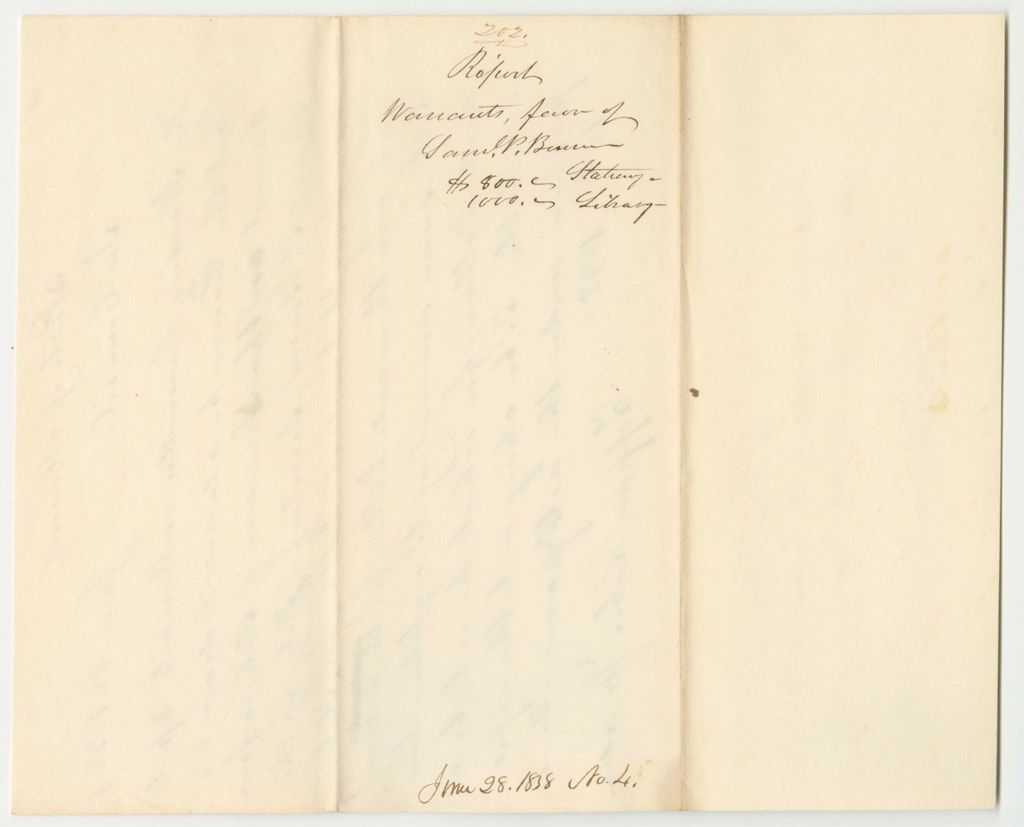 202.
Report
Warrants, favor of
Saml. P. Benson
$ 800. Stationy
1000. Library
June 28. 1838 No. 4.